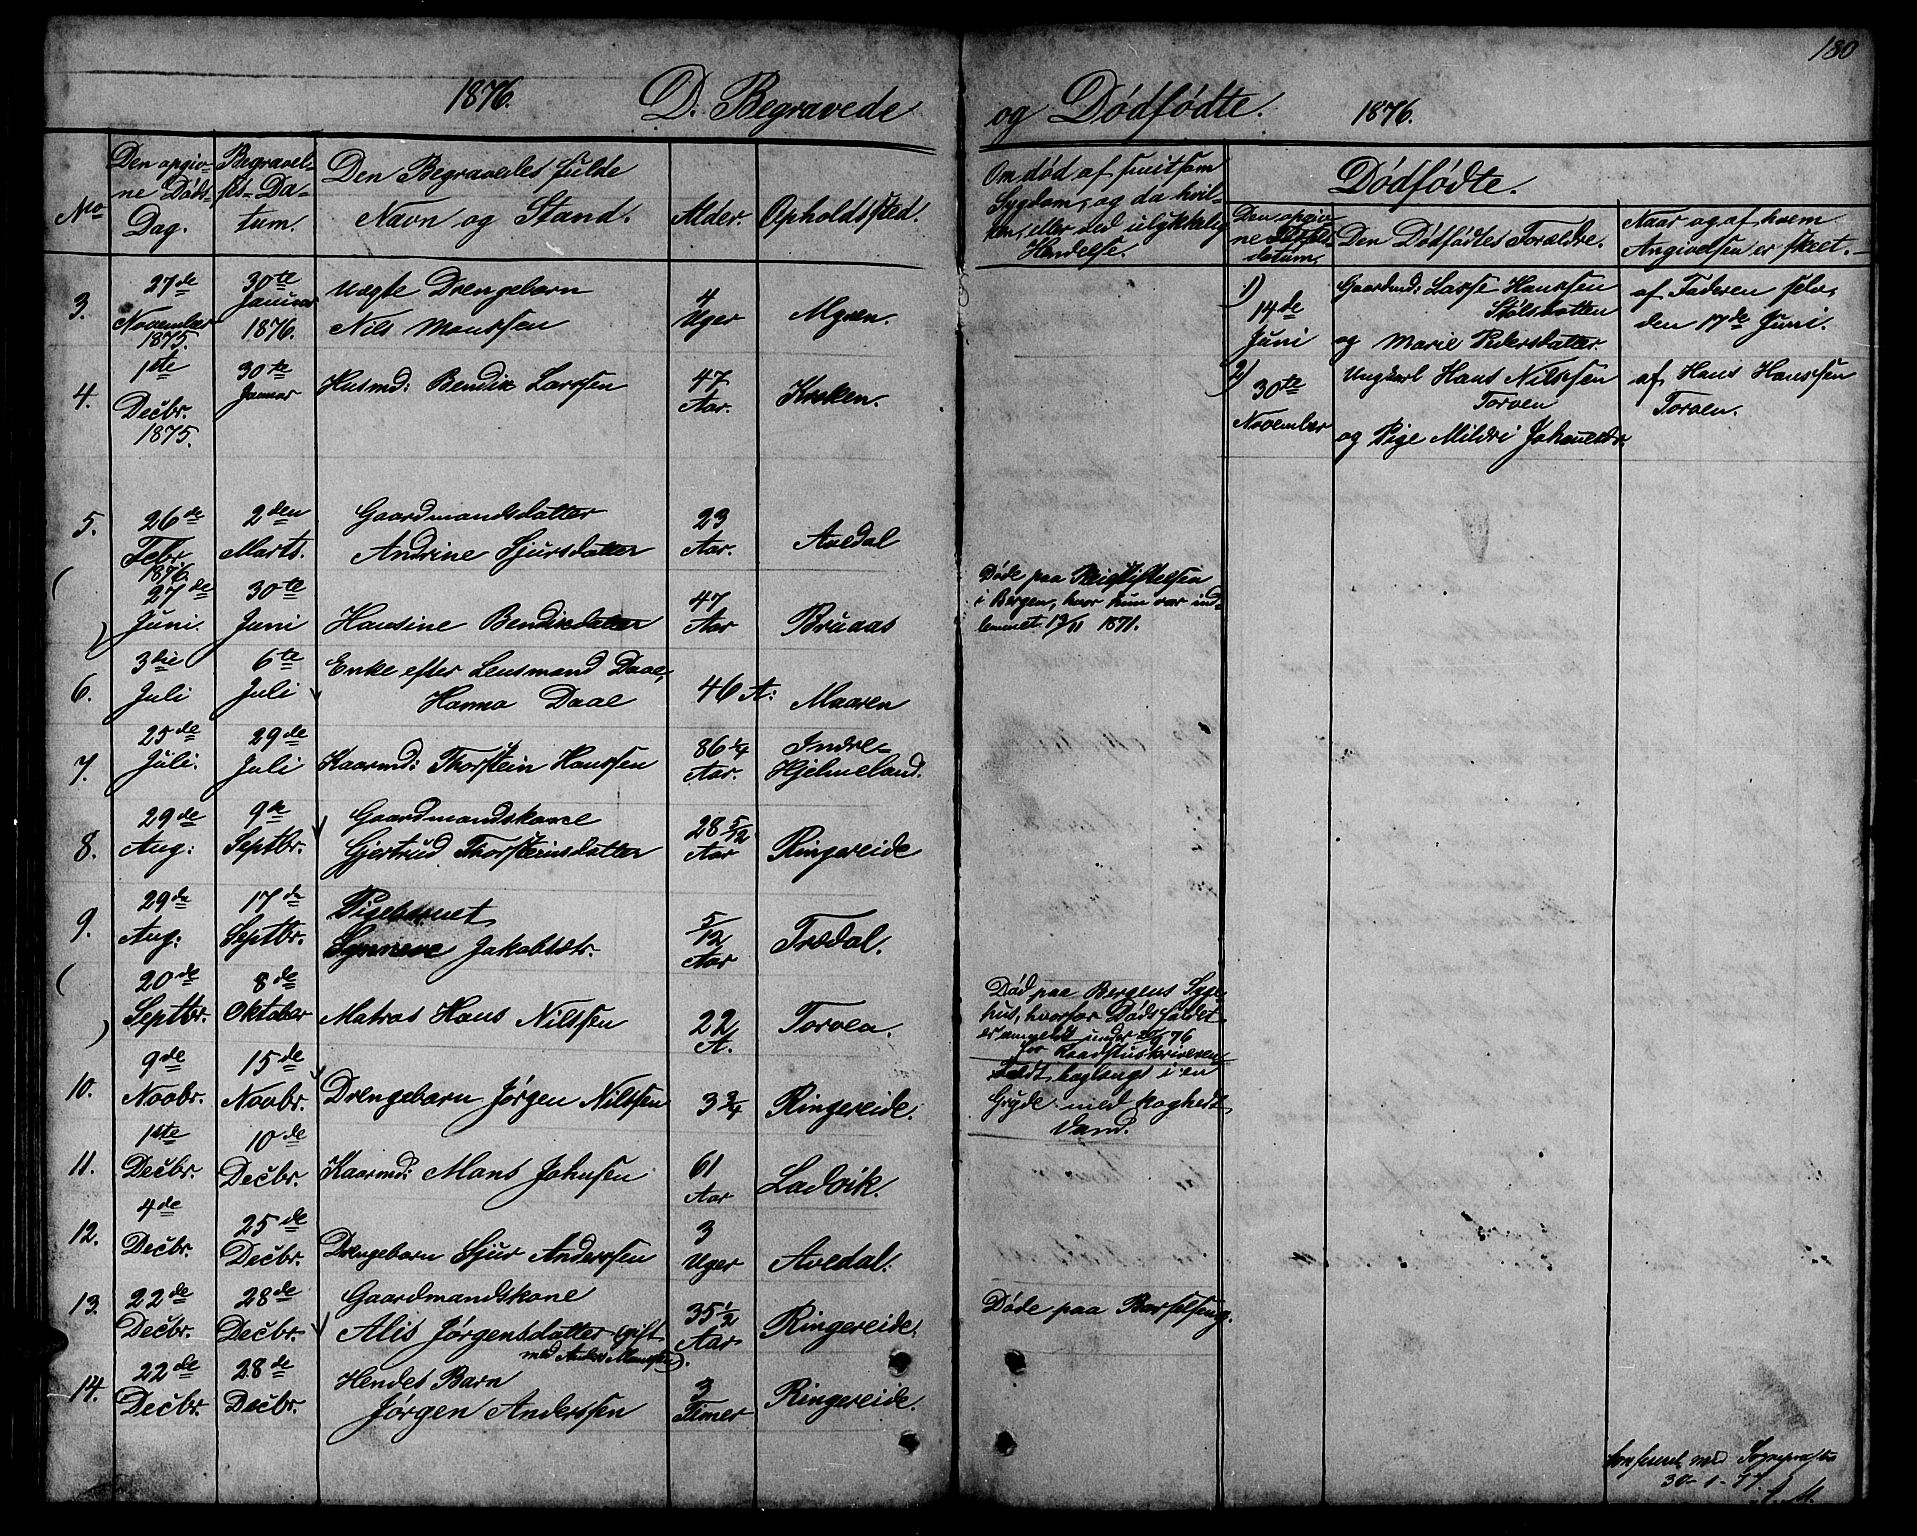 180
1876. D. Begravede
og Dødfødte. 1876.
No
Den opgiv-
ne Døds-
Dag.
Begravel-
ses-Da-
tum.
Den Begravedes fulde
Navn og Stand.
Alder.
Opholdssted.
Om død af smitsom
Sygdom, og da hvil-
ken, eller ved ulykkelig
Hendelse.
Dødfødte.
Den opgiv-
ne
datum.
Den Dødfødtes Forældre.
Naar og af hvem
Angivelsen er skeet.
3.
27de
November
1875.
30te
Januar
1876.
Uægte Drengebarn
Nils Monssen
4
Uger
Myren.
4.
1ste
Decbr.
1875.
30te
Januar
Husmd: Bendik Larssen
47
Aar.
Kroken.
5.
26de
Febr.
1876.
2den
Marts.
Gaardmandsdatter
Andrine Sjursdatter
23
Aar.
Avedal
27de
Juni.
30te
Juni
Hansine Bendiksdatter
47
Aar
Bruaas
Døde paa Pleiestiftelsen
i Bergen, hvor hun var ind-
lemmet 19/11 1871.
6.
3die
Juli
6te
Juli
Enke efter Lensmand Daae,
Hanna Daae
46 A:
Maaren
7.
25de
Juli.
29de
Juli
Kaarmd: Thorstein Hanssen
86 1/4
Aar.
Indre-
Hjelmeland.
8.
29de
Aug:
9de
Septbr.
Gaardmandskone
Gjertrud Thorsteinsdatter
28 5/12
Aar
Ringereide
9.
29de
Aug:
17de
Septbr.
Pigebarnet
Synneve Jakobsdtr.
5/12
Aar
Trædal.
20de
Septbr.
8de
Oktober
Matros Hans Nilssen
22
A.
Torven
Død paa Bergens Syge-
hus, hvorfor Dødsfaldet
er anmeldt under 76
for Raadstuskriveren
10.
9de
Novbr.
15de
Novbr.
Drengebarn Jørgen Nilssen
3 3/4
Ringereide.
Faldt baglengs i en
Gryde med koghedt
Vand.
11.
1ste
Decbr.
10de
Decbr.
Kaarmd: Mons Johnsen
61
Aar
Ladvik.
12.
4de
Decbr.
25de
Decbr.
Drengebarn Sjur Anderssen
3
Uger
Avedal.
13.
22de
Decbr.
28de
Decbr.
Gaardmandskone
Alis Jørgensdatter (gift
med Anders Monssen).
35 1/2
Aar
Ringereide.
Døde paa Barselseng.
14.
22de
Decbr.
28de
Decbr.
Hendes Barn
Jørgen Anderssen
3
Timer
Ringereide.
1)
14de
Juni
Gaardmd: Lasse Hanssen
Stølsbotten
og Marie Pedersdatter.
af Faderen selv,
den 17de Juni.
2)
30te
November
Ungkarl Hans Nilssen
Torven
og Pige Mildri Johannesdr.
af Hans Hanssen
Torven.
Konfereret med Sognepræstens
30-1-77.